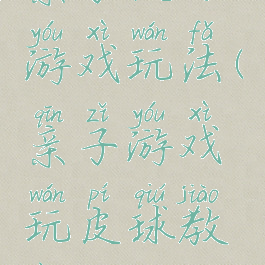 yóu xì wán fǎ
游戏玩法(
qīn zǐ yóu xì
亲子游戏
wán pí qiú jiào
玩皮球教